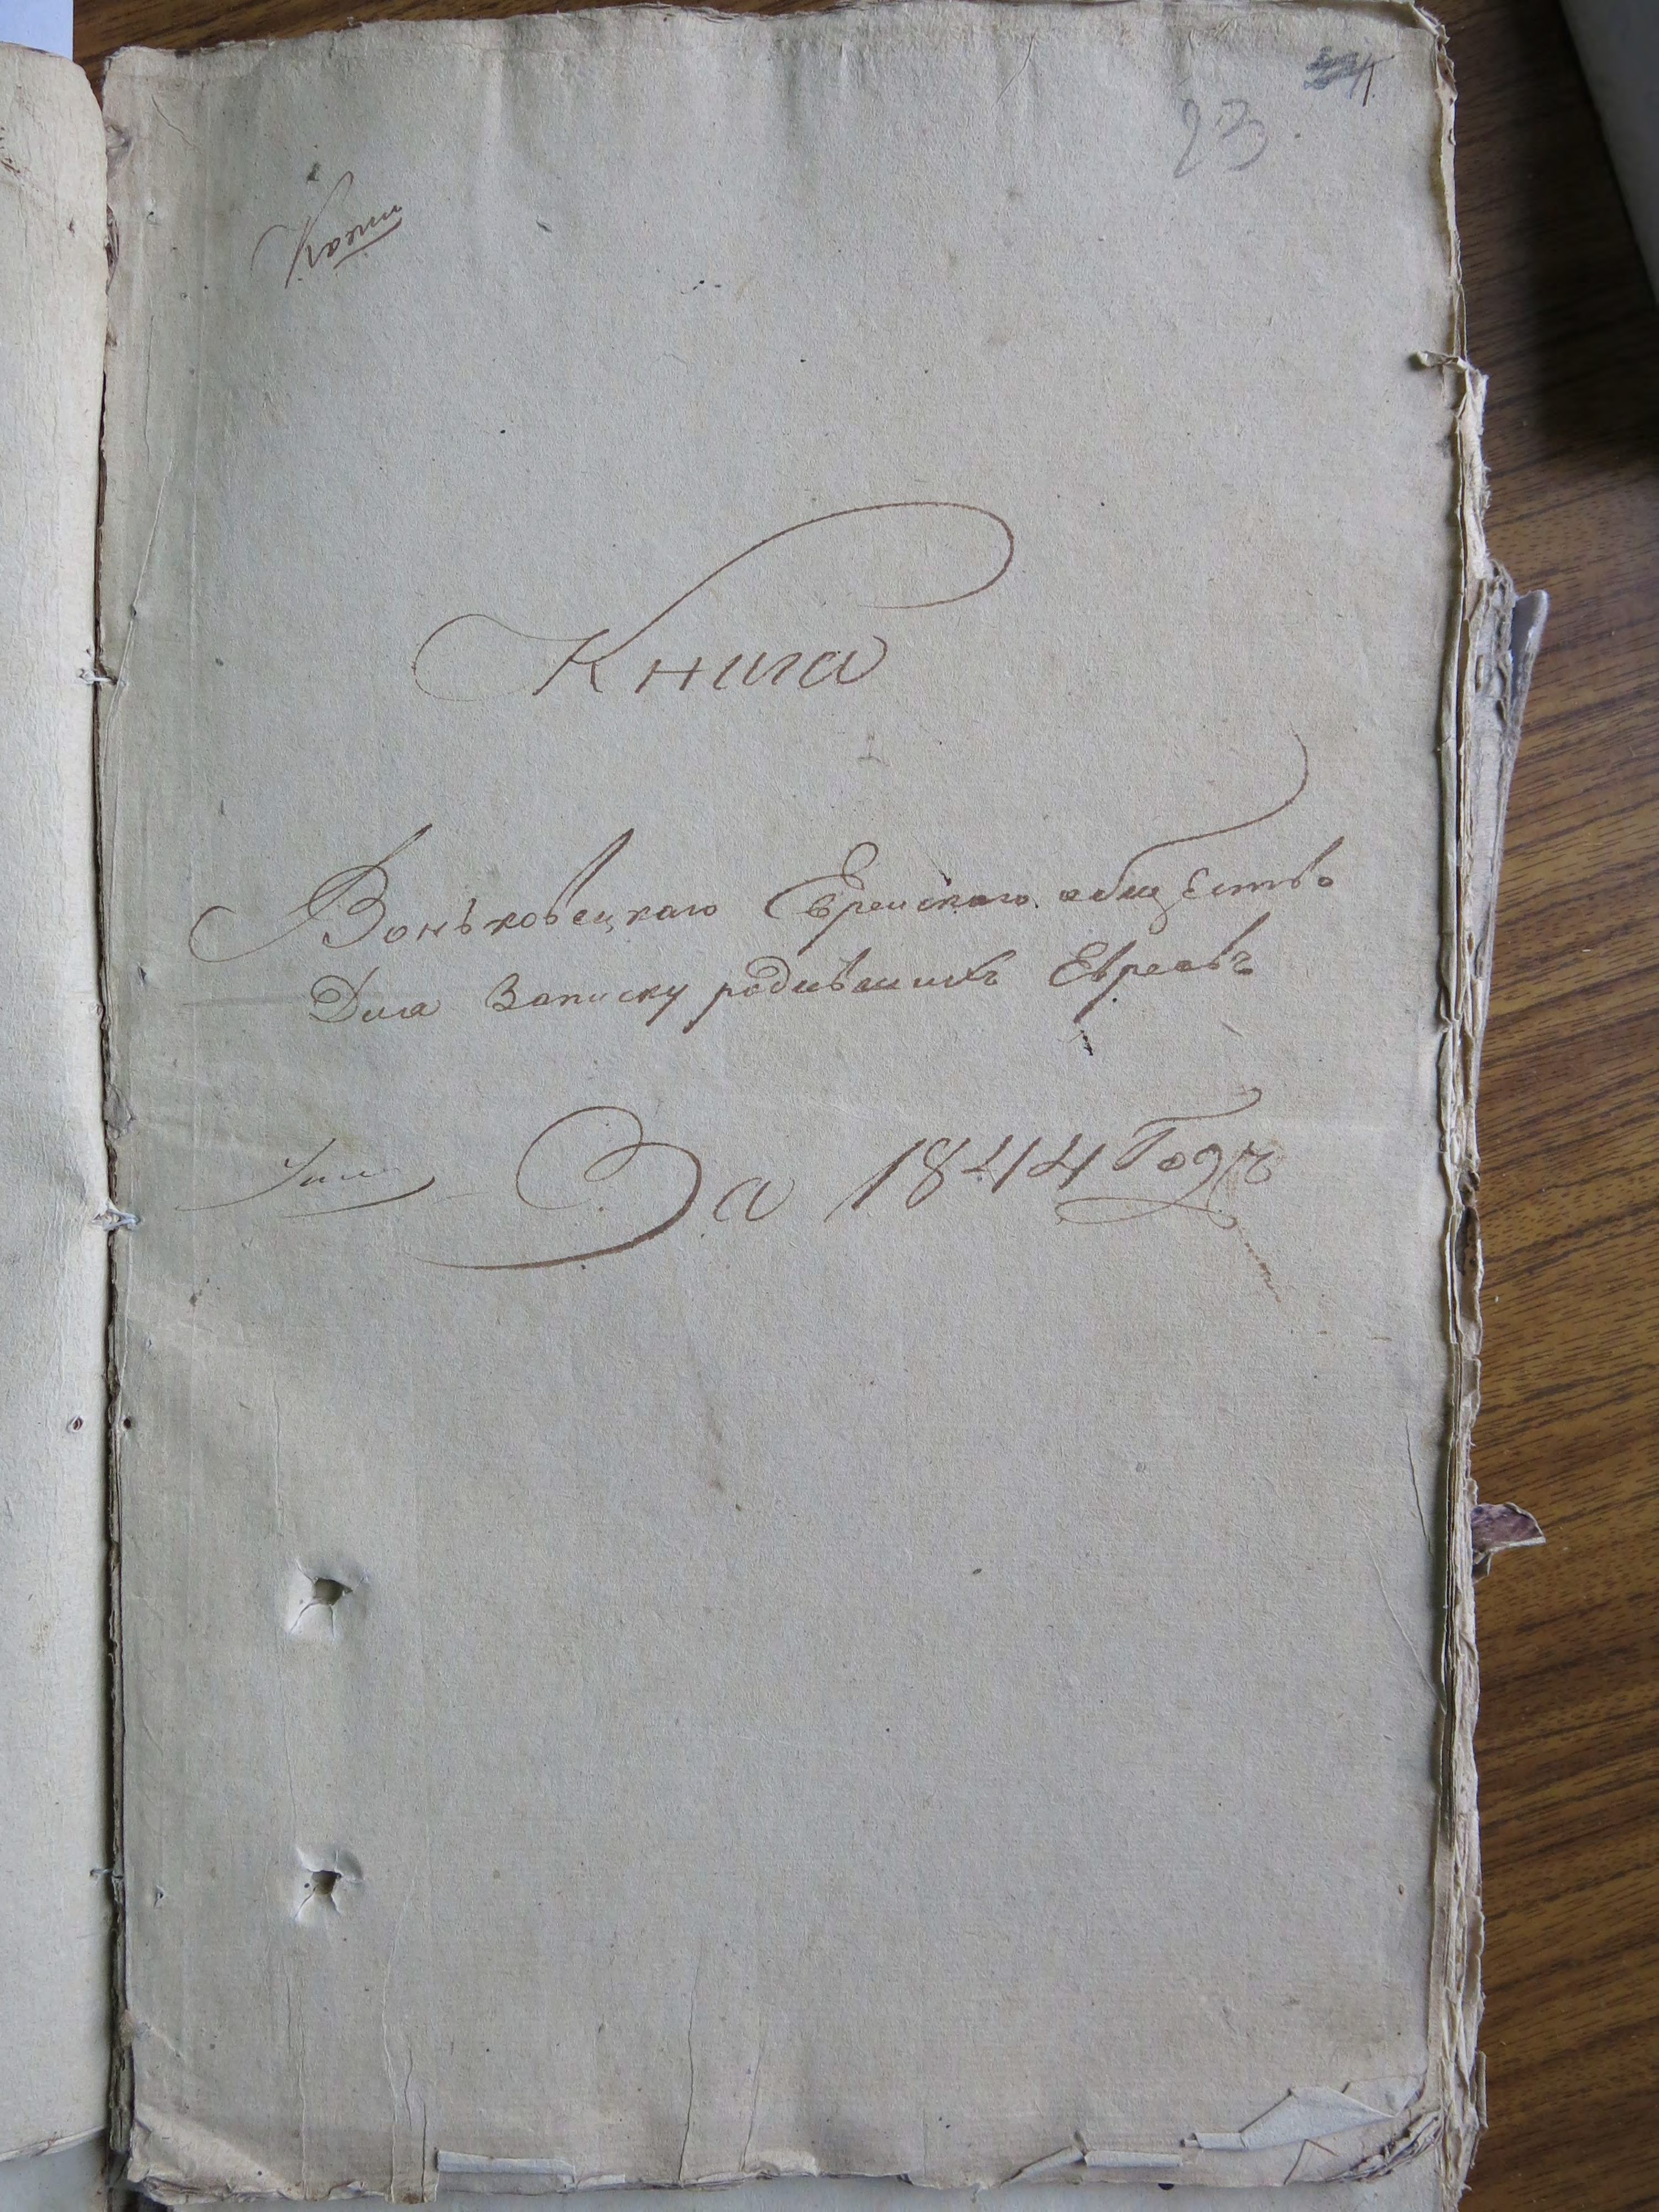 23.
Книга
Воньковецкаго Еврейскаго обществo
Для Записку родившихъ Евреевъ
За 1844 Годъ